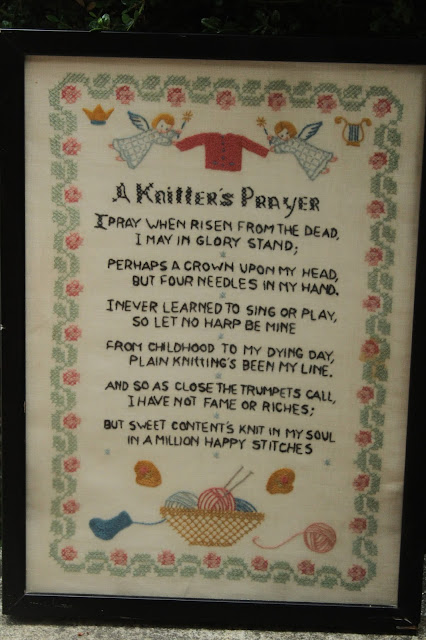 A Knitter's Prayer
I PRAY WHEN RISEN FROM THE DEAD,
I MAY IN GLORY STAND;
PERHAPS A CROWN UPON MY HEAD,
BUT FOUR NEEDLES IN MY HAND.
I NEVER LEARNED TO SING OR PLAY,
SO LET NO HARP BE MINE
FROM CHILDHOOD TO MY DYING DAY,
PLAIN KNITTING'S BEEN MY LINE.
AND SO AS CLOSE THE TRUMPETS CALL,
I HAVE NOT FAME OR RICHES;
BUT SWEET CONTENT'S KNIT IN MY SOUL
IN A MILLION HAPPY STITCHES